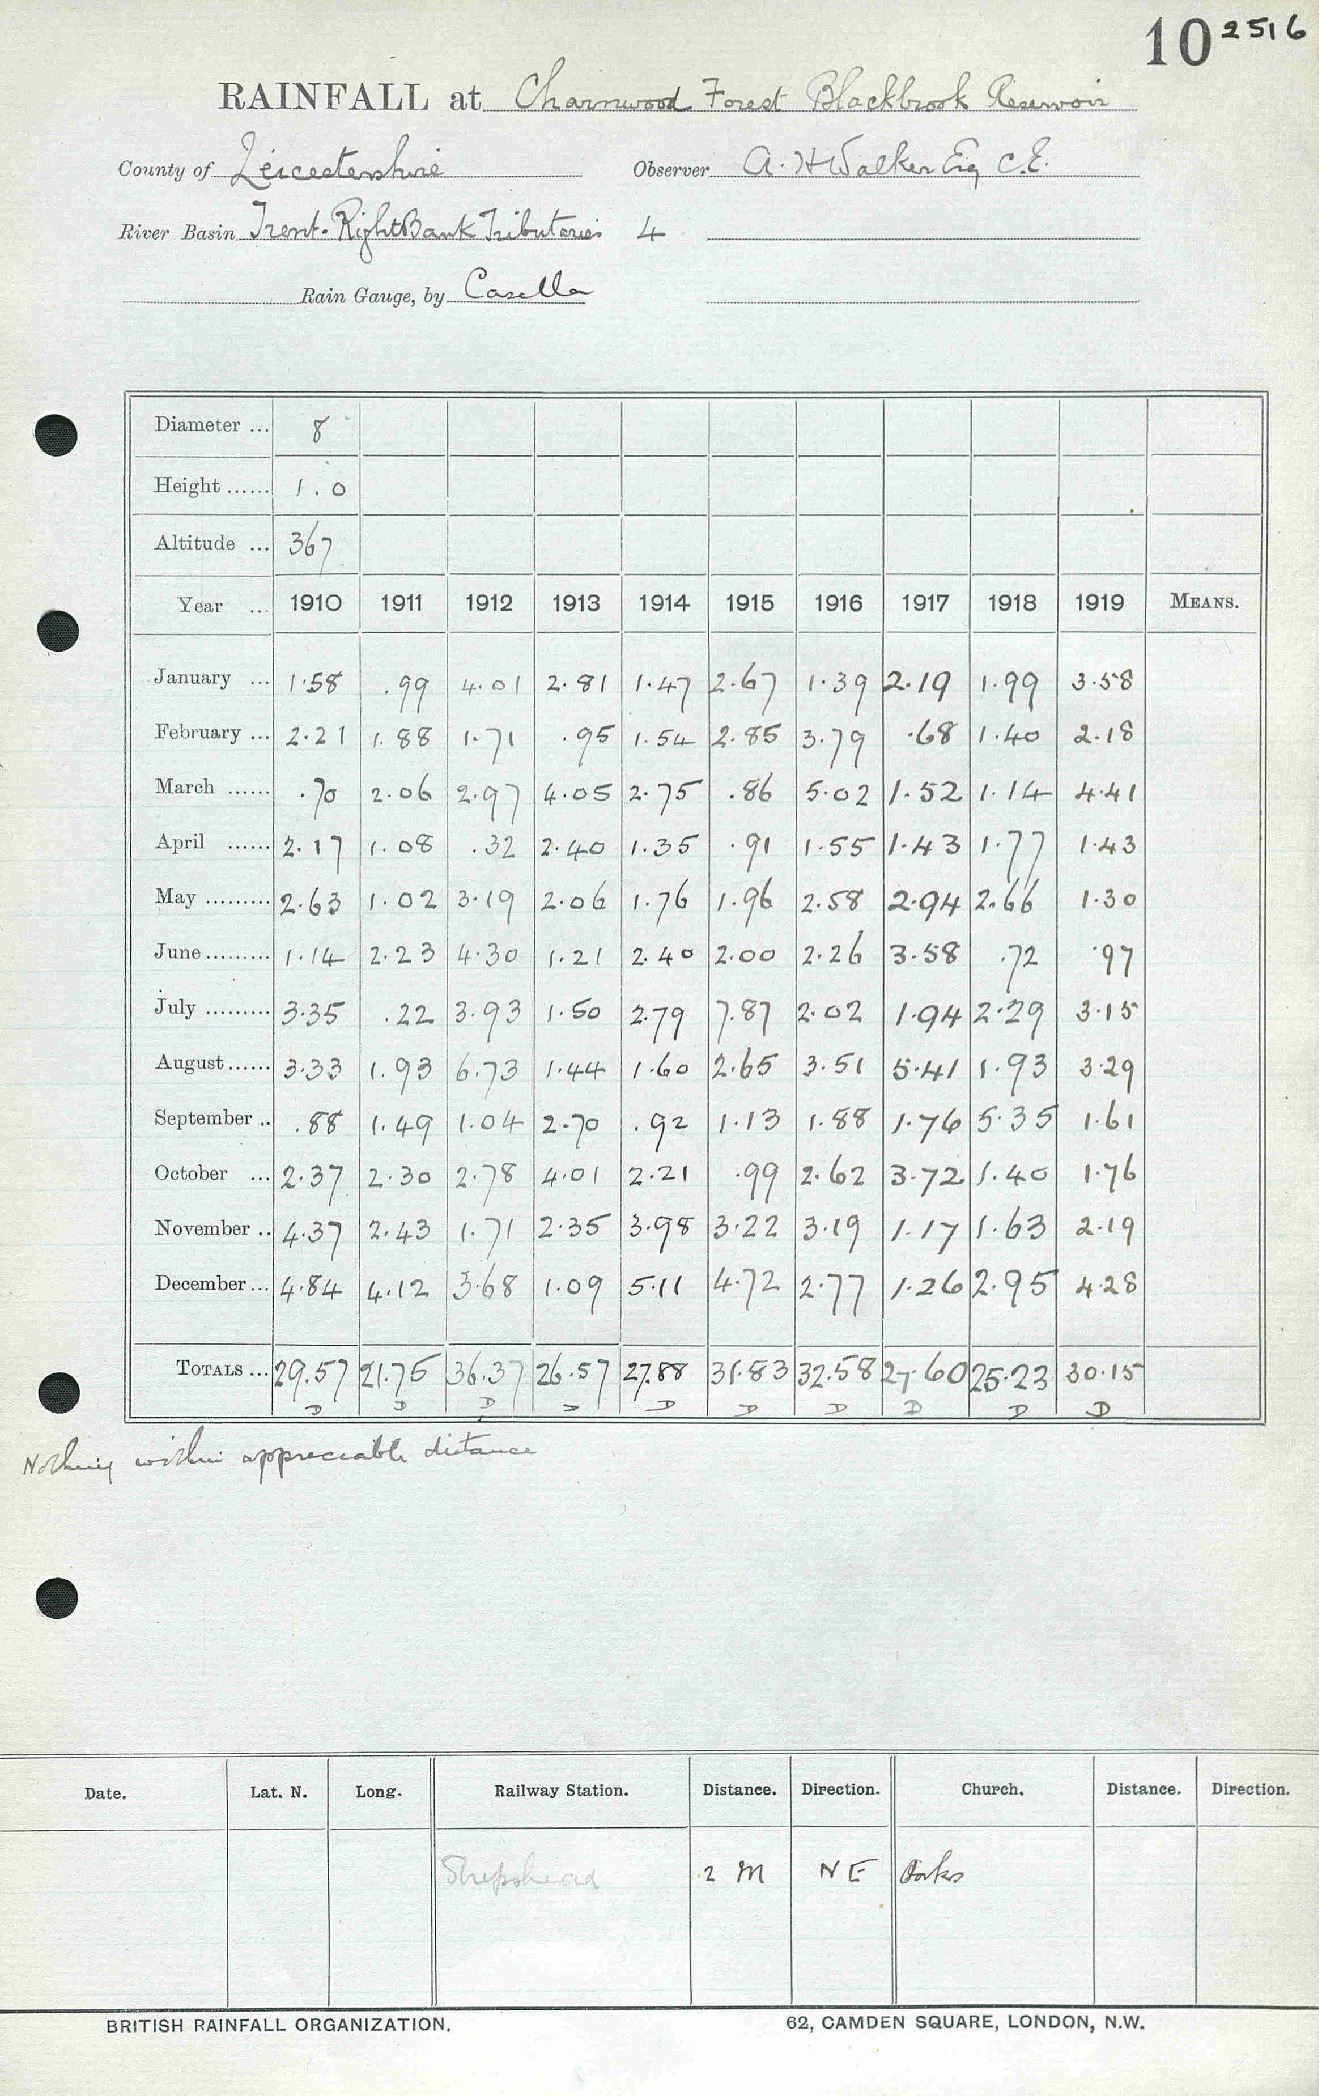 10 2516
RAINFALL at Charnwood Forest Blackbrook Reservoir
County of Leicestershire Observer A. H Walker Esq C.E.
River Basin Trent-Right Bank Tributaries 4
Rain Gauge, by Casella
Diameter ... 8
Height ...... 1.0
Altitude ... 367
Year ... 1910 1911 1912 1913 1914 1915 1916 1917 1918 1919 MEANS.
January ... 1.58 .99 4.01 2.81 1.47 2.67 1.39 2.19 1.99 3.58
February ... 2.21 1.88 1.71 .95 1.54 2.85 3.79 .68 1.40 2.18
March ...... .70 2.06 2.97 4.05 2.75 .86 5.02 1.52 1.14 4.41
April ...... 2.17 1.08 .32 2.40 1.35 .91 1.55 1.43 1.77 1.43
May ......... 2.63 1.02 3.19 2.06 1.76 1.96 2.58 2.94 2.66 1.30
June ......... 1.14 2.23 4.30 1.21 2.40 2.00 2.26 3.58 .72 .97
July ......... 3.35 .22 3.93 1.50 2.79 7.87 2.02 1.94 2.29 3.15
August ...... 3.33 1.93 6.73 1.44 1.60 2.65 3.51 5.41 1.93 3.29
September .. .88 1.49 1.04 2.70 .92 1.13 1.88 1.76 5.35 1.61
October ... 2.37 2.30 2.78 4.01 2.21 .99 2.62 3.72 1.40 1.76
November .. 4.37 2.43 1.71 2.35 3.98 3.22 3.19 1.17 1.63 2.19
December ... 4.84 4.12 3.68 1.09 5.11 4.72 2.77 1.26 2.95 4.28
TOTALS ... 29.57 21.75 36.37 26.57 27.88 31.83 32.58 27.60 25.23 30.15
D D D D D D D D D D
Nothing within appreciable distance
Date. Lat. N. Long. Railway Station. Distance. Direction. Church. Distance. Direction.
Shepshead 2 M NE Oaks
BRITISH RAINFALL ORGANIZATION. 62, CAMDEN SQUARE, LONDON, N.W.